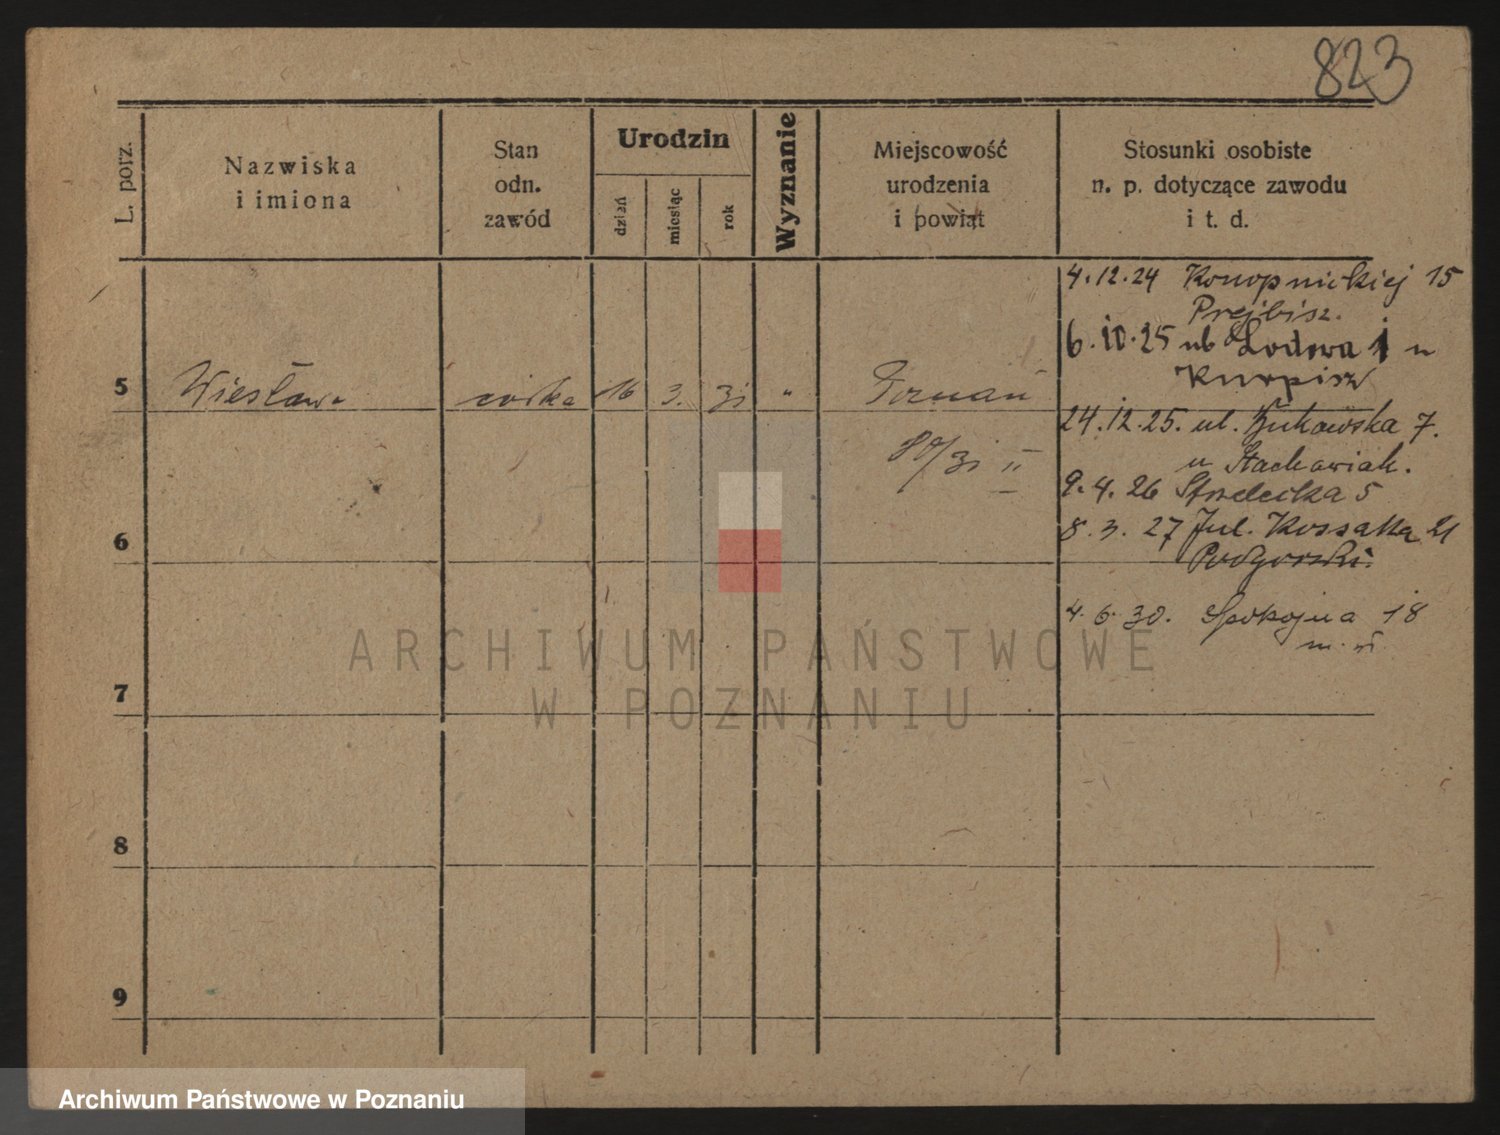 823
L. porz.
Nazwiska
i imiona
Stan
odn.
zawód
Urodzin
dzień
miesiąc
rok
Wyznanie
Miejscowość
urodzenia
i powiat
Stosunki osobiste
n. p. dotyczące zawodu
i t. d.
4.12.24 Konopnickiej 15
Prejbisz.
6.10.25 ul Lodowa 1 u
Kurpisz
5 Wiesława córka 16 3. 31 " Poznań
24.12.25. ul. Bukowska 7.
u Stachowiak.
/31 II
9.4.26 Strzelecka 5
8.3.27 Jul. Kossaka 21
Podgorski.
6
4.6.30. Spokojna 18
ARCHIWUM PAŃSTWOWE
W POZNANIU
7
8
9
Archiwum Państwowe w Poznaniu